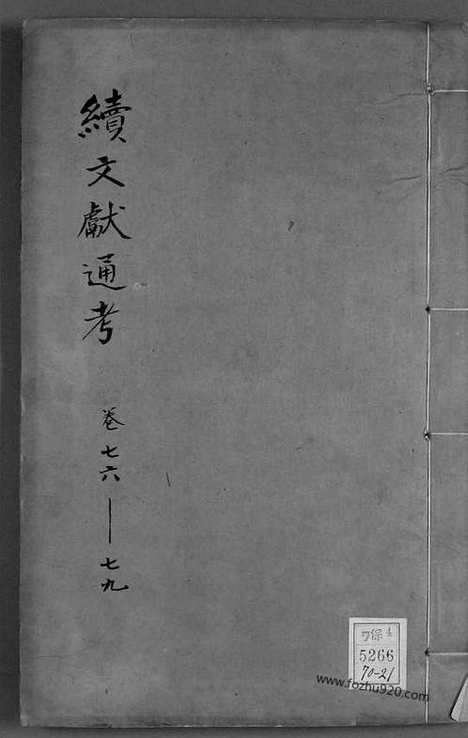 續文獻通考
卷七六——七九
ワ保4
5266
70-21
www.fozhu920.com